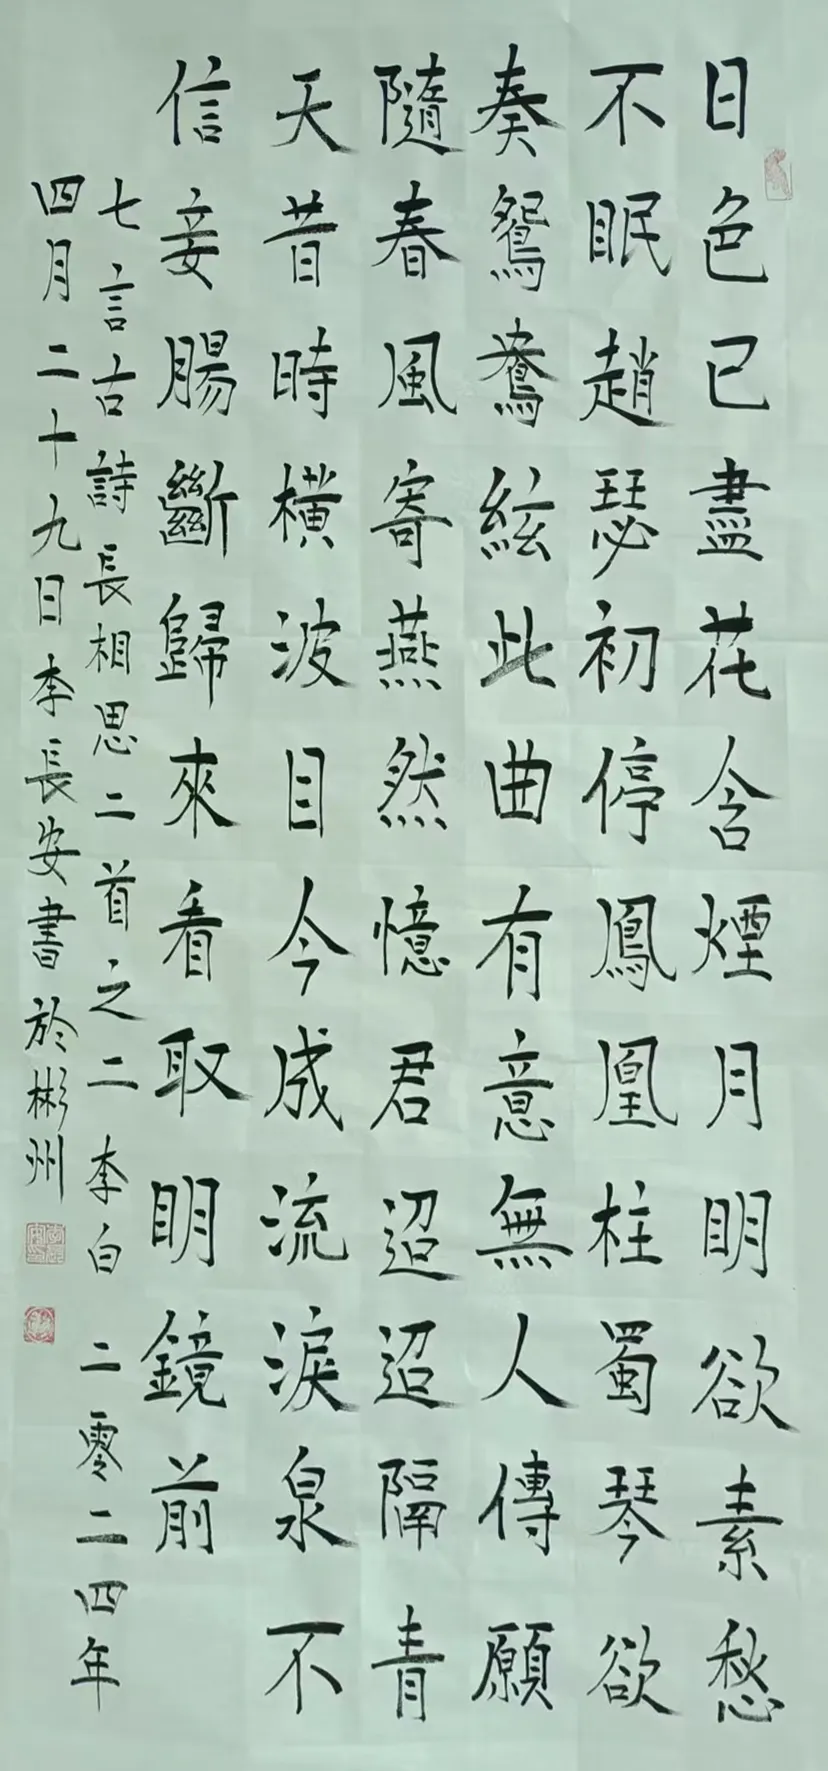 日色已盡花含煙月明欲素愁
不眠趙瑟初停鳳凰柱蜀琴欲
奏鴛鴦絃此曲有意無人傳願
隨春風寄燕然憶君迢迢隔青
天昔時橫波目今成流淚泉不
信妾腸斷歸來看取明鏡前
七言古詩長相思二首之二李白 二零二四年
四月二十九日李長安書於彬州